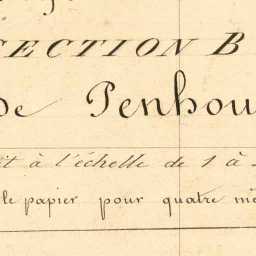 SECTION B
de Penhou
it à l'échelle de 1 à
le papier pour quatre mè